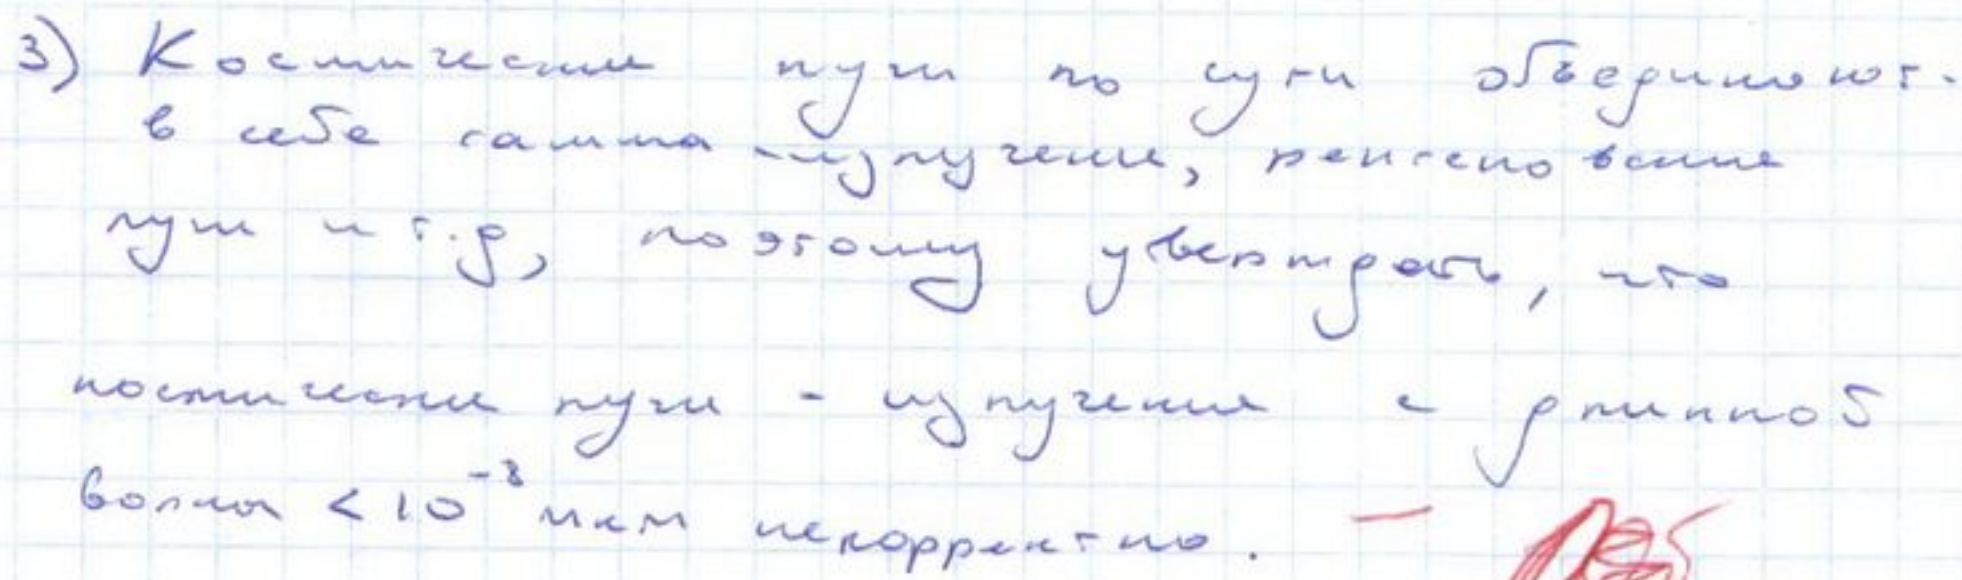 3) Космические лучи по сути объединяют
в себе гамма-излучение, рентгеновские
лучи и т.д, поэтому утверждать, что
космические лучи - излучение с длинной
волны < 10⁻⁸ мкм некорректно. -